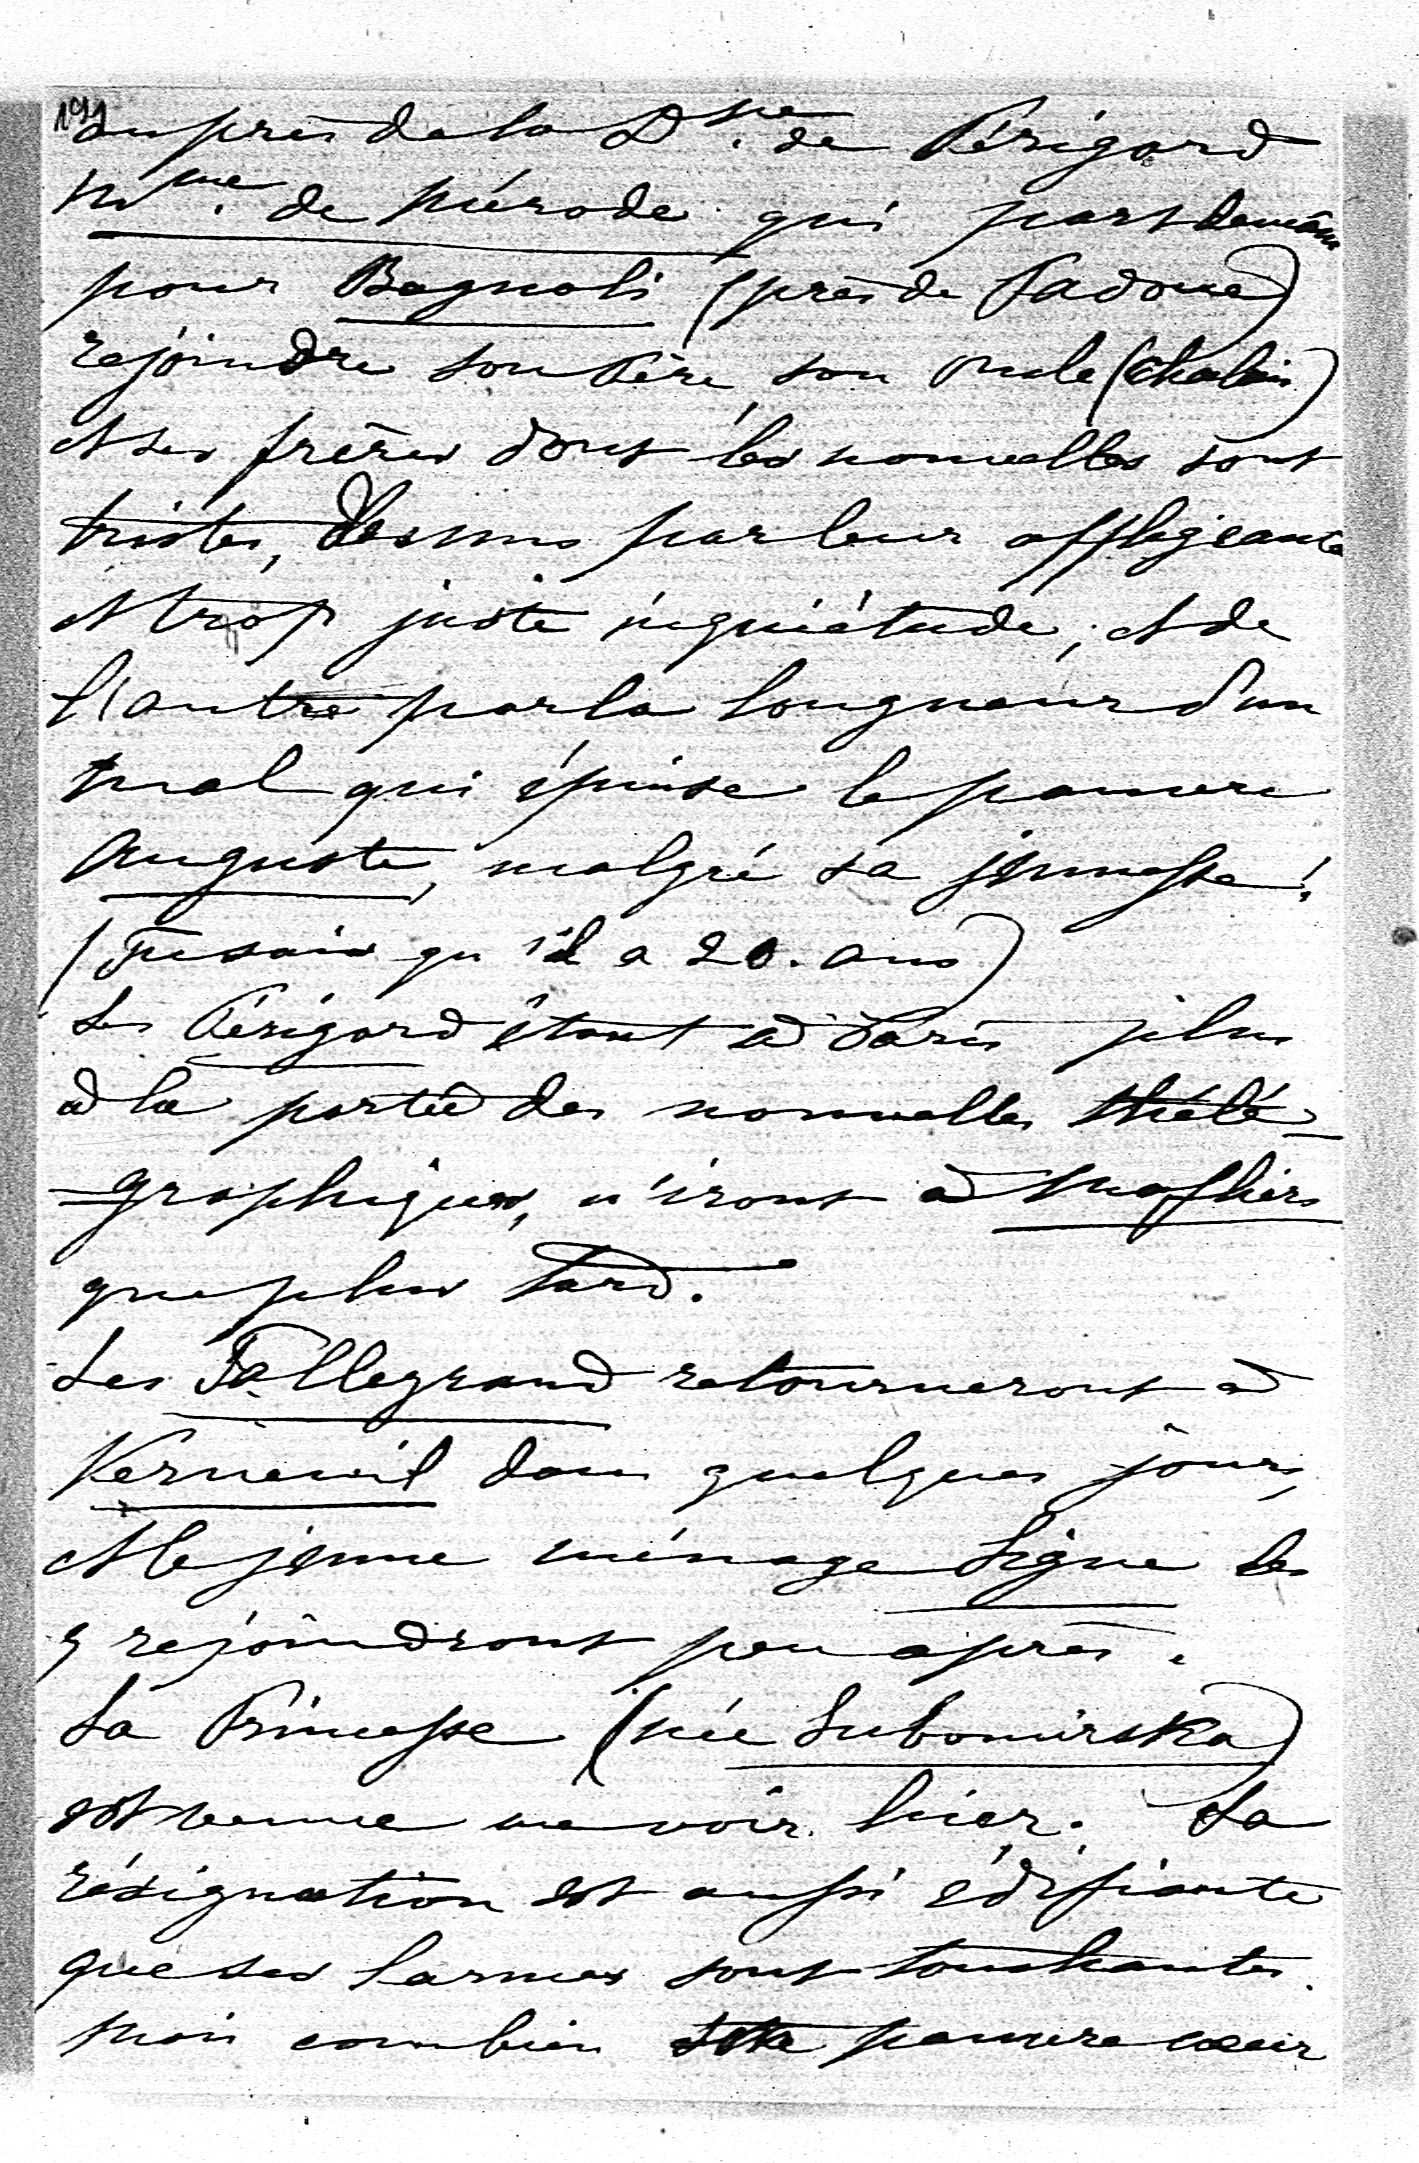 191
auprès de la D.sse de Périgord
Mme. de Mérode qui part demain
pour Bagnoli (près de Padoue)
rejoindre son Père, son oncle (Chalais)
et ses frères dont les nouvelles sont
tristes, des uns par leur affligeante
et trop juste inquiétude; et de
l'autre par la longueur d'un
mal qui épuise le pauvre
Auguste, malgré sa jeunesse!
(Tu sais qu'il a 20. ans)
Les Périgord étant à Paris plus
à la portée des nouvelles thélé-
-graphiques, n'iront à Maffliers
que plus tard.
Les Talleyrand retourneront à
Verneuil dans quelques jours,
et le jeune ménage Ligne les
y rejoindront peu après.
La Princesse (née Lubomirska)
est venue me voir hier. Sa
résignation est aussi édifiante
que ses larmes sont touchantes.
Mais combien pauvre cœur